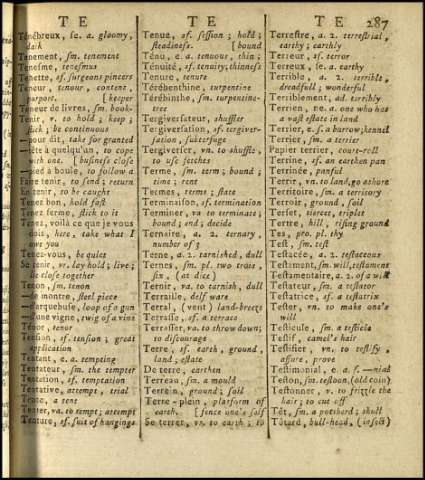 TE
TE
TE
287
Ténébreux, se. a. gloomy,
dark
Tenement, sm. tenement
Tenesme, tenesmus
Tenette, sf. surgeons pincers
Teneur, tenour, content,
purport. [keeper
Teneur de livres, sm. book-
Tenir, v. to hold; keep;
stick; be continuous
—pour dit, take for granted
—tête à quelqu'un, to cope
with one. [business close
—pied à boule, to follow a
Faire tenir, to send; return
En tenir, to be caught
Tenez bon, hold fast
Tenez ferme, stick to it
Tenez, voilà ce que je vous
dois, here, take what I
owe you
Tenez-vous, be quiet
Se tenir, vr. lay hold; live;
be close together
Tenon, sm. tenon
—de montre, steel piece
—d'arquebuse, loop of a gun
—d'une vigne, twig of a vine
Ténor, tenor
Tension, sf. tension; great
application
Tentant, e. a. tempting
Tentateur, sm. the tempter
Tentation, sf. temptation
Tentative, attempt, trial
Tente, a tent
Tenter, va. to tempt; attempt
Tenture, sf. suit of hangings
Tenue, sf. session; hold;
steadiness. [bound
Ténu, e. a. tenuous, thin;
Ténuité, sf. tenuity; thinness
Tenure, tenure
Térébenthine, turpentine
Térébinthe, sm. turpentine-
tree
Tergiversateur, shuffler
Tergiversation, sf. tergiver-
sation, subterfuge
Tergiverser, vn. to shuffle,
to use fetches
Terme, sm. term; bound;
time; rent
Termes, terms; state
Terminaison, sf. termination
Terminer, va to terminate;
bound; end; decide
Ternaire, a. 2. ternary,
number of 3
Terne, a. 2. tarnished, dull
Ternes, sm. pl. two trois,
six, (at dice)
Ternir, va. to tarnish, dull
Terraille, delf ware
Terral, (vent) land-breeze
Terrasse, sf. a terrace
Terrasser, va. to throw down;
to discourage
Terre, sf. earth, ground,
land; estate
De terre, earthen
Terreau, sm. a mould
Terrein, ground; soil
Terre-plein, platform of
earth. [fence one's self
Se terrer, vr. to earth; to
Terrestre, a. 2. terrestrial,
earthy; earthly
Terreur, sf. terror
Terreux, se. a. earthy
Terrible, a. 2. terrible,
dreadfull; wonderful
Terriblement, ad. terribly
Terrien, ne. a. one who has
a vast estate in land
Terrier, e. s. a burrow; kennel
Terrier, sm. a terrier
Papier terrier, court-roll
Terrine, sf. an earthen pan
Terrinée, panful
Terrir, vn. to land, go ashore
Territoire, sm. a territory
Terroir, ground, soil
Terset, tiercet, triplet
Tertre, hill, rising ground
Tes, pro. pl. thy
Test, sm. test
Testacée, a. 2. testaceous
Testament, sm. will, testament
Testamentaire, a. 2. of a will
Testateur, sm. a testator
Testatrice, sf. a testatrix
Tester, vn. to make one's
will
Testicule, sm. a testicle
Testif, camel's hair
Testifier, vn. to testify,
assure, prove
Testimonial, e. a. s. —nial
Teston, sm. testoon, (old coin)
Testonner, v. to frizzle the
hair; to cut off
Têt, sm. a potsherd; skull
Têtard, bull-head, (insect)